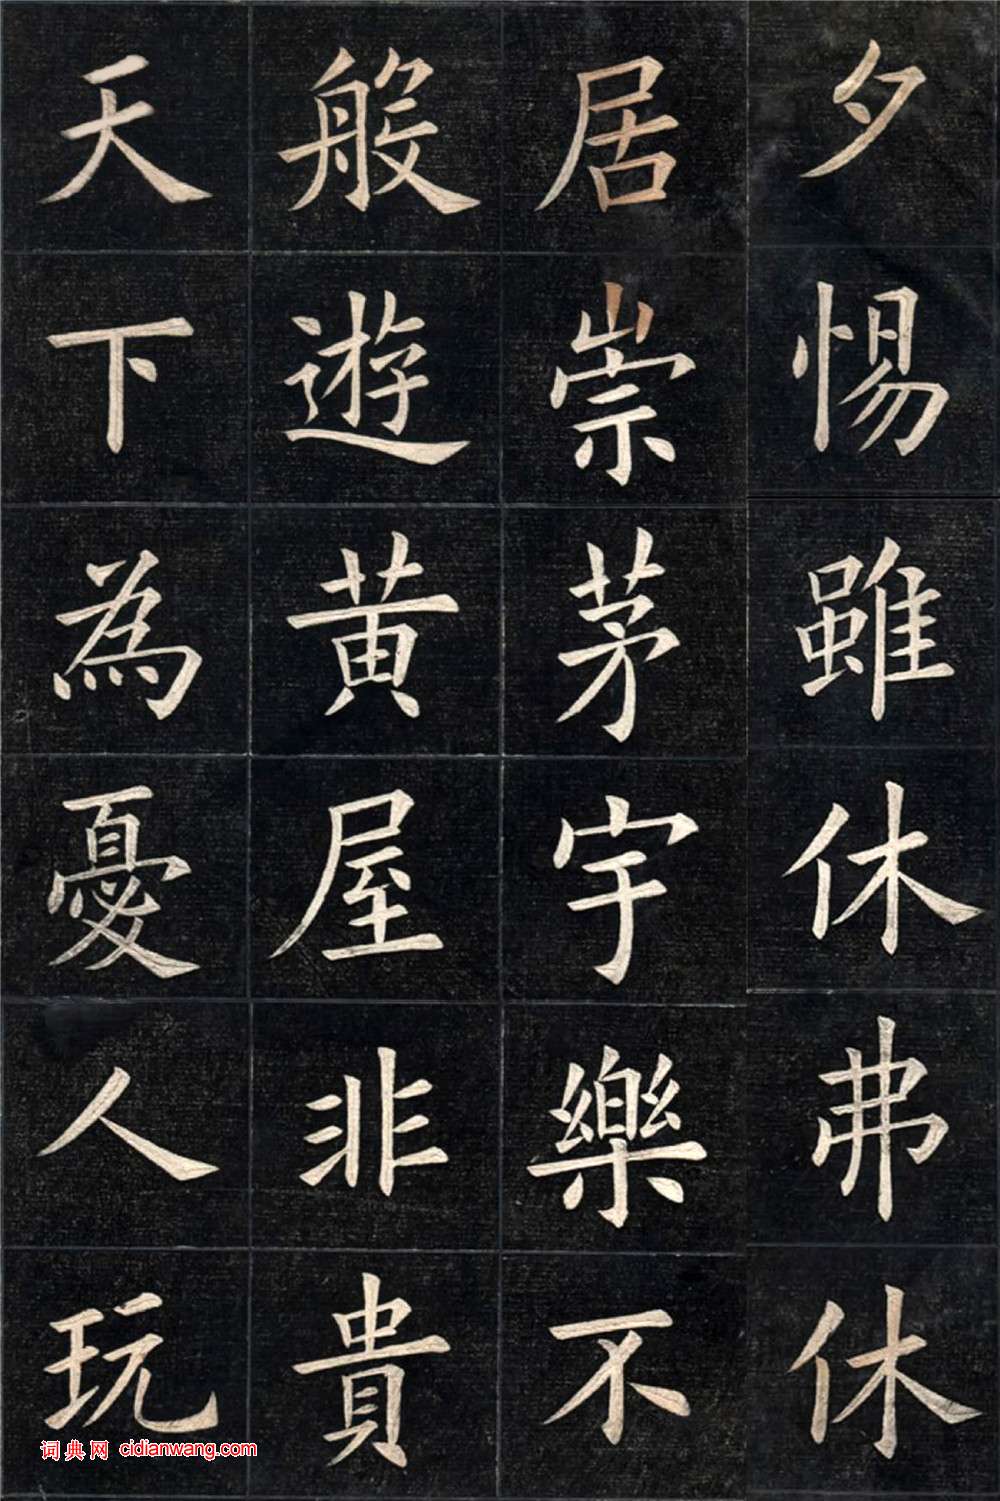 夕惕雖休弗休
居崇茅宇樂不
般遊黃屋非貴
天下為憂人玩
词典网 cidianwang.com